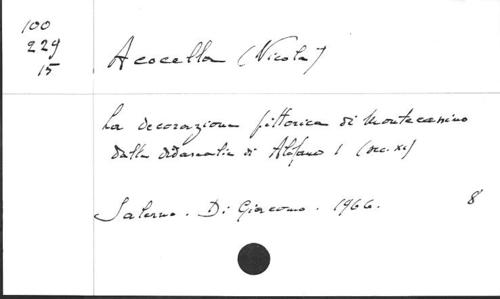 100
229
15
Acocella (Nicola)
La decorazione pittorica di Montecassino
dalle didascalie di Alfano I (sec. XI)
Salerno. Di Giacomo. 1966. 8°